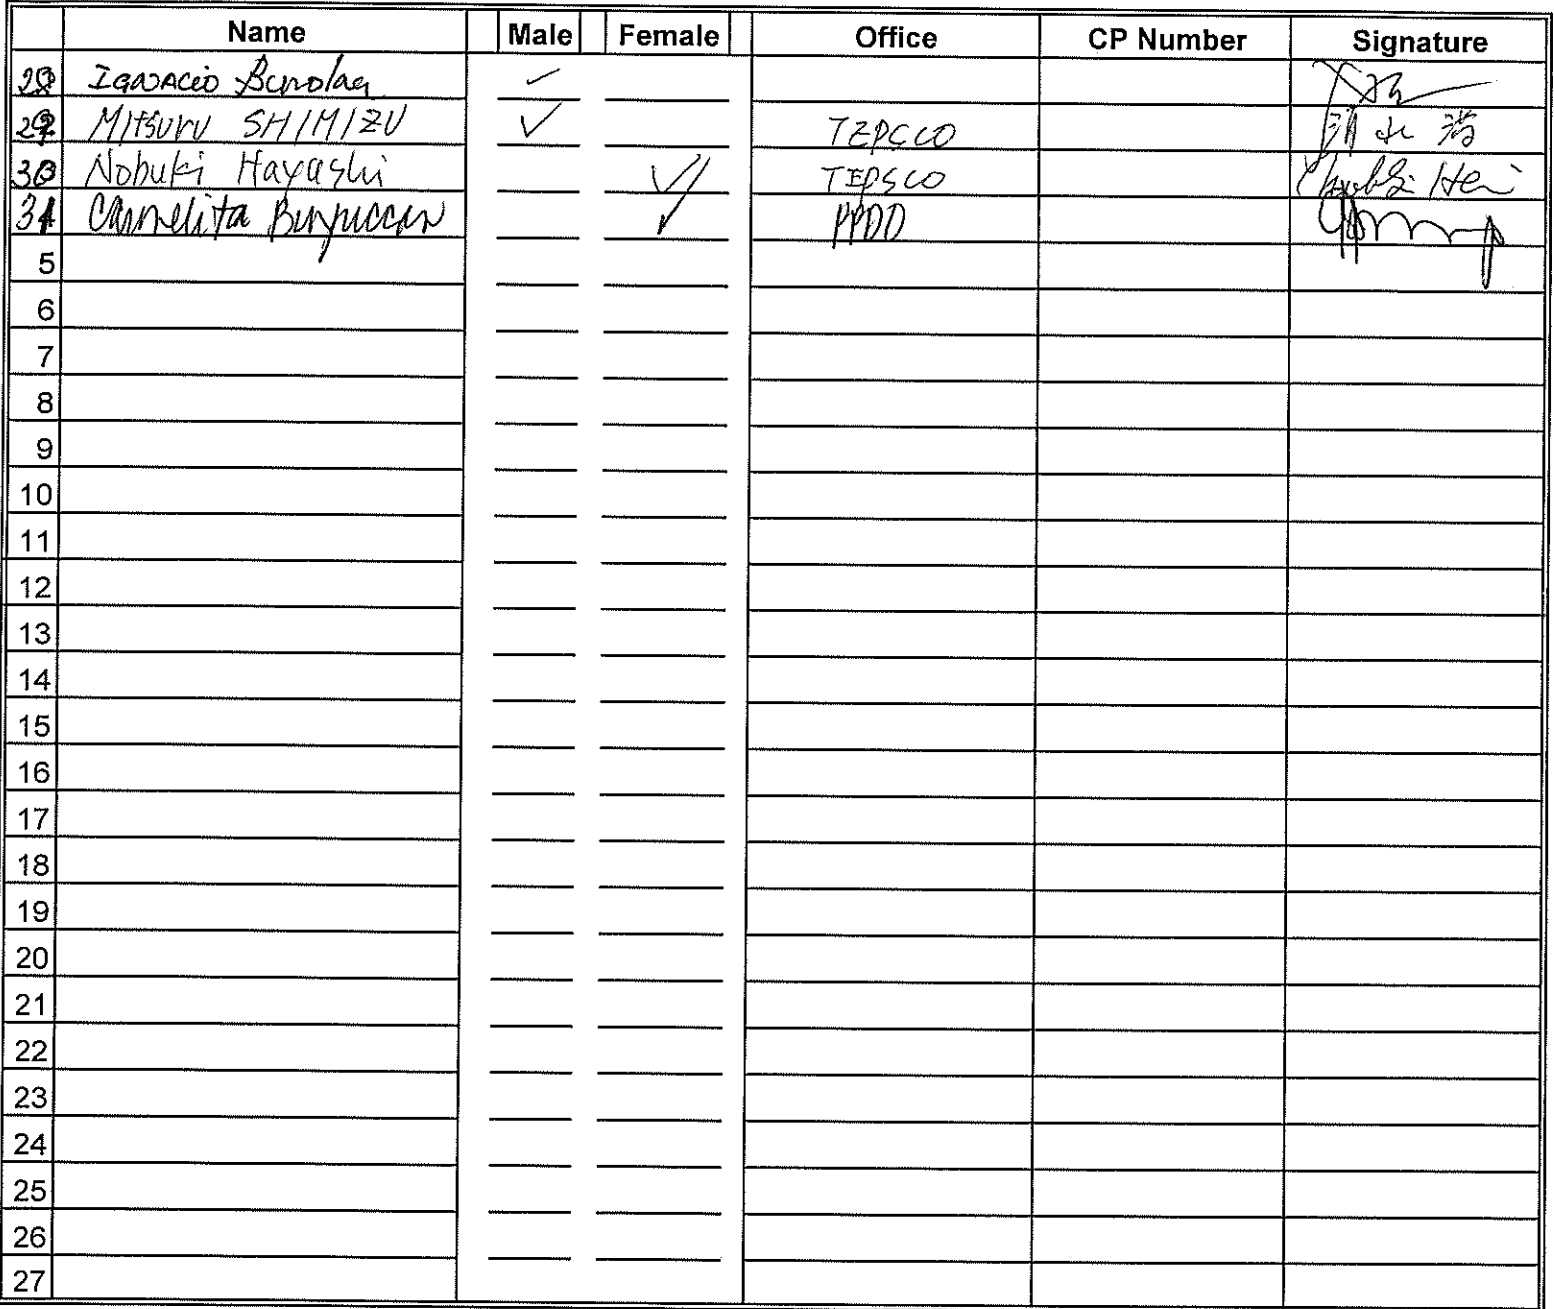 Name Male Female Office CP Number Signature
28 Ignacio
29 Mitsuru SHIMIZU ✓ TEPSCO 清水 満
30 Nobuki Hayashi ✓ TEPSCO
31 Carmelita ✓ PPDO
5
6
7
8
9
10
11
12
13
14
15
16
17
18
19
20
21
22
23
24
25
26
27